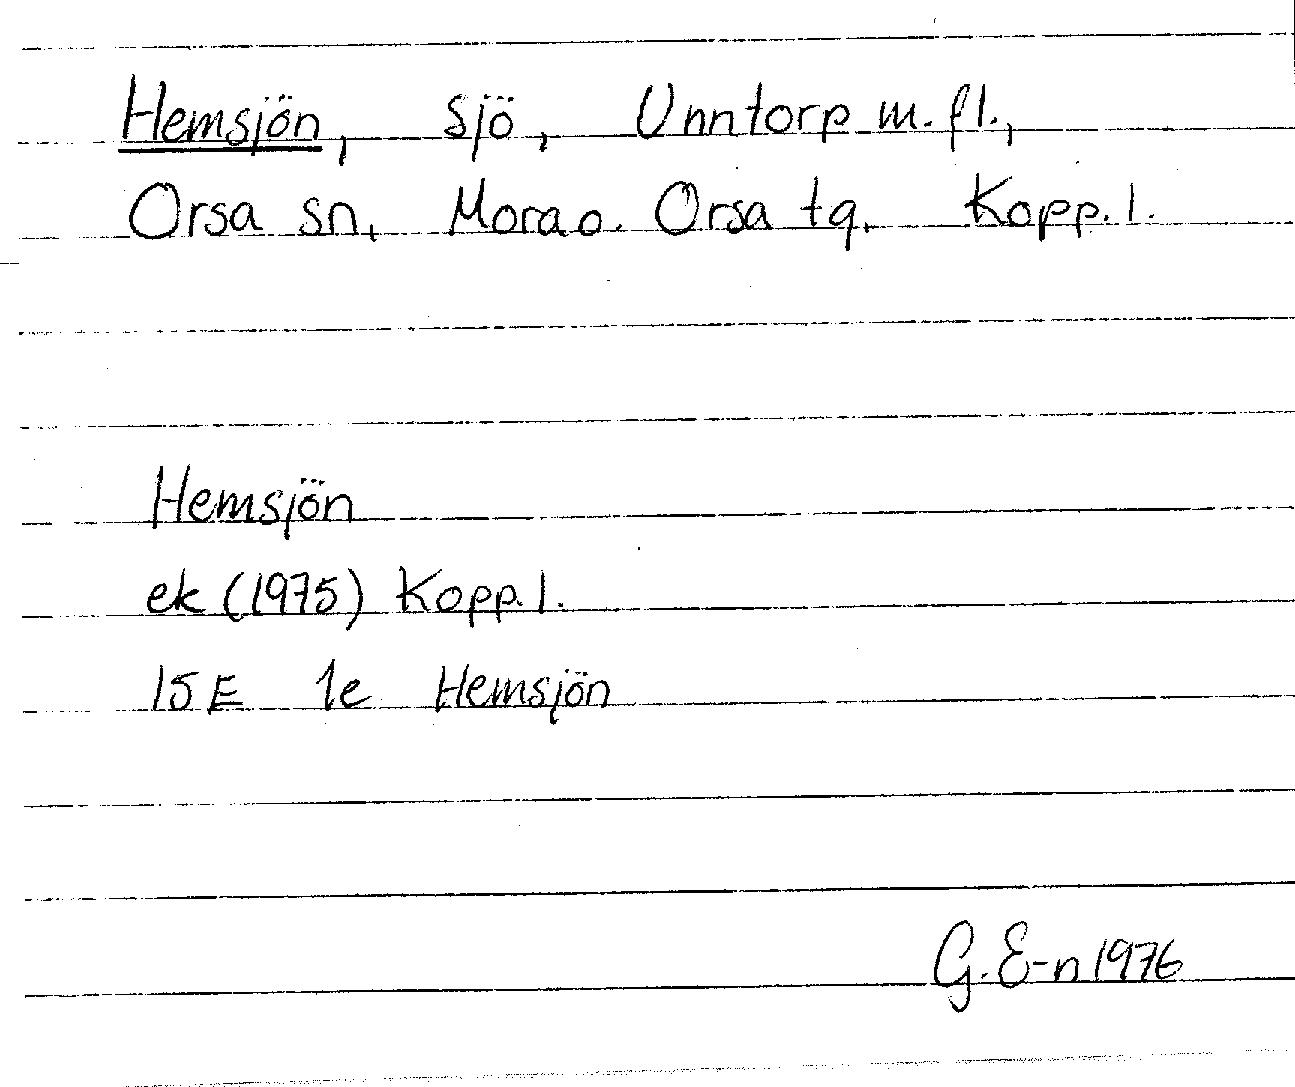 Hemsjön, sjö, Unntorp m.fl.,
Orsa sn, Mora o. Orsa tg, Kopp.l.
Hemsjön
ek (1975) Kopp.l.
15E 1e Hemsjön
G.E-n 1976